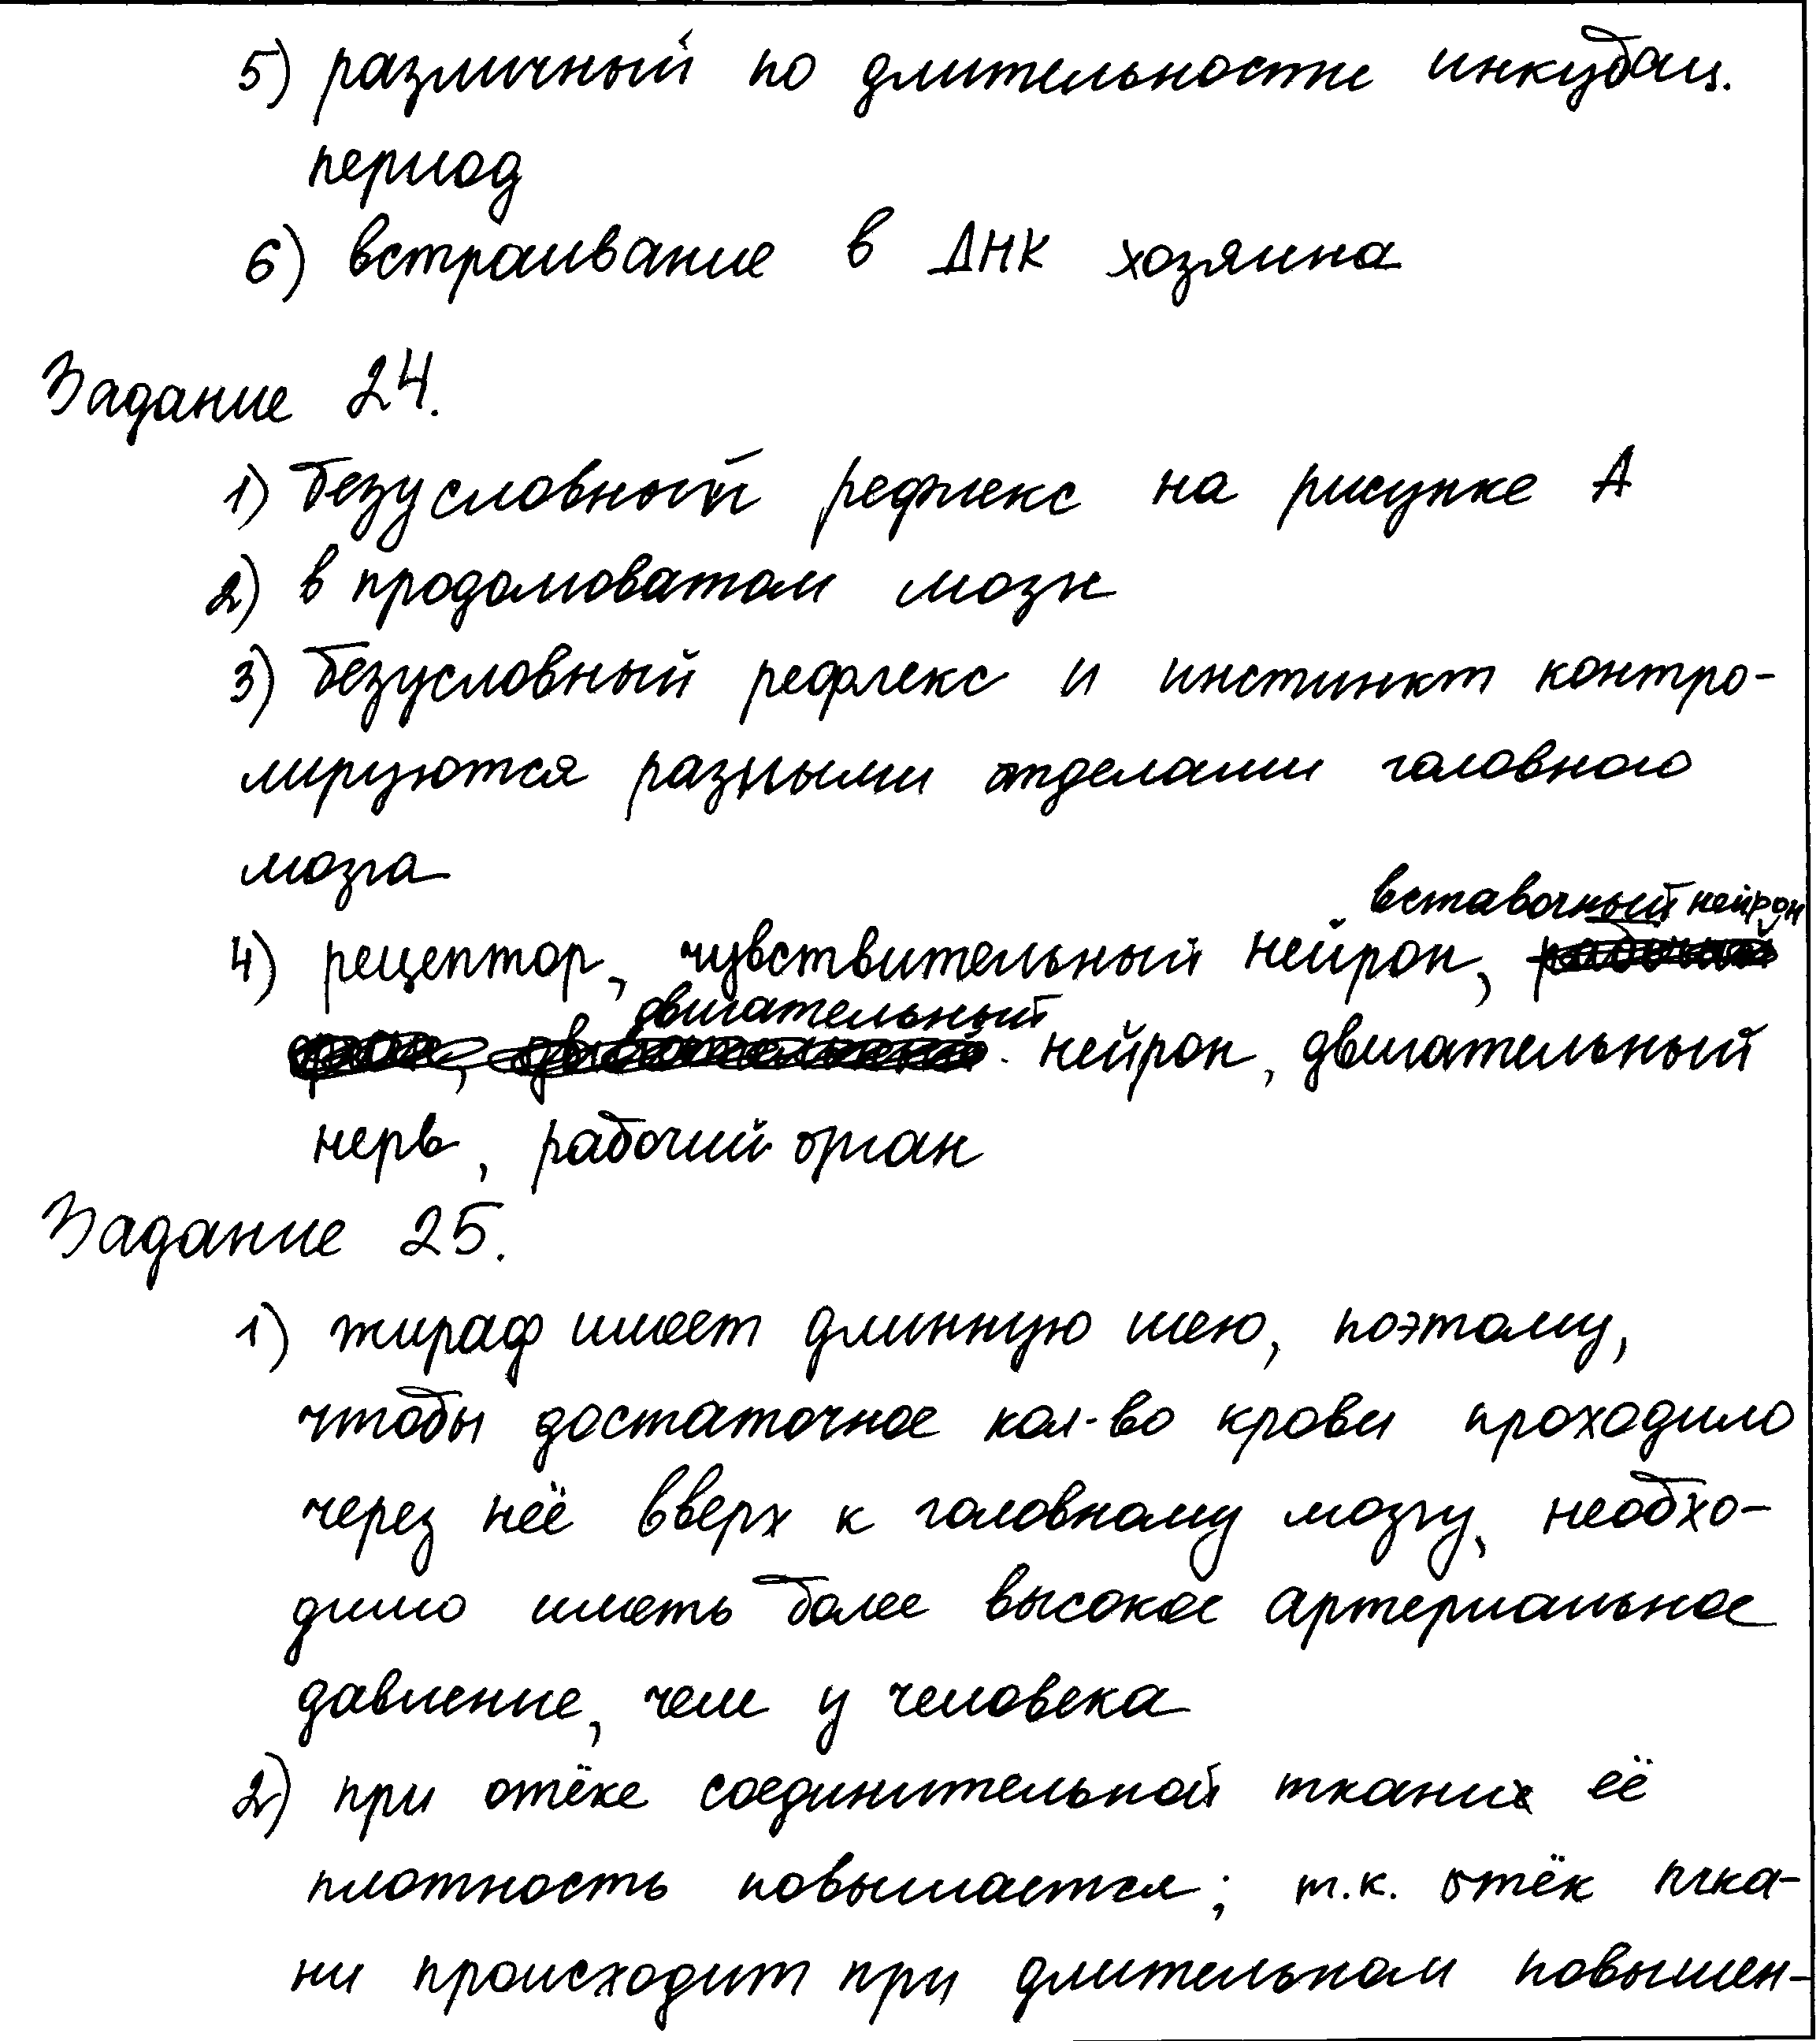 5) различный по длительности инкубац.
период
6) встраивание в ДНК хозяина
Задание 24.
1) безусловный рефлекс на рисунке А
2) в продолговатом мозге
3) безусловный рефлекс и инстинкт контро-
лируются разными отделами головного
мозга
вставочный нейрон
4) рецептор, чувствительный нейрон,
двигательный
нейрон, двигательный
нерв, рабочий орган
Задание 25.
1) жираф имеет длинную шею, поэтому,
чтобы достаточное кол-во крови проходило
через неё вверх к головному мозгу, необхо-
димо иметь более высокое артериальное
давление, чем у человека
2) при отёке соединительной ткани её
плотность повышается; т.к. отёк тка-
ни происходит при длительном повышен-